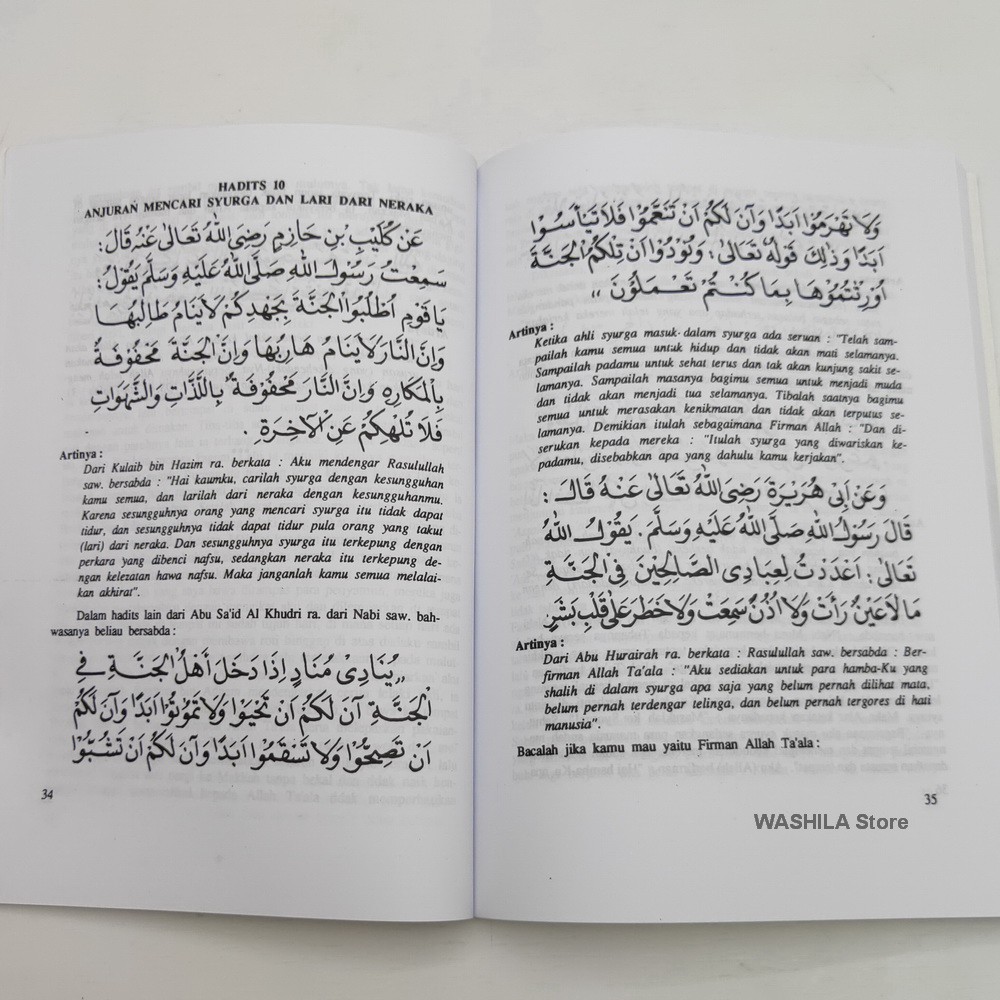 HADITS 10
ANJURAN MENCARI SYURGA DAN LARI DARI NERAKA
عَنْ كُلَيْبِ بْنِ حَازِمٍ رَضِيَ اللهُ تَعَالَى عَنْهُ قَالَ:
سَمِعْتُ رَسُوْلَ اللهِ صَلَّى اللهُ عَلَيْهِ وَسَلَّمَ يَقُوْلُ:
يَا قَوْمِ اُطْلُبُوا الْجَنَّةَ بِجَهْدِكُمْ لاَ يَنَامُ طَالِبُهَا
وَاِنَّ النَّارَ لاَ يَنَامُ هَارِبُهَا وَاِنَّ الْجَنَّةَ مَحْفُوْفَةٌ
بِالْمَكَارِهِ وَاِنَّ النَّارَ مَحْفُوْفَةٌ بِاللَّذَّاتِ وَالشَّهَوَاتِ
فَلاَ تُلْهِكُمْ عَنِ الْآخِرَةِ.
Artinya :
Dari Kulaib bin Hazim ra. berkata : Aku mendengar Rasulullah
saw. bersabda : "Hai kaumku, carilah syurga dengan kesungguhan
kamu semua, dan larilah dari neraka dengan kesungguhanmu.
Karena sesungguhnya orang yang mencari syurga itu tidak dapat
tidur, dan sesungguhnya tidak dapat tidur pula orang yang takut
(lari) dari neraka. Dan sesungguhnya syurga itu terkepung dengan
perkara yang dibenci nafsu, sedangkan neraka itu terkepung de-
ngan kelezatan hawa nafsu. Maka janganlah kamu semua melalai-
kan akhirat".
Dalam hadits lain dari Abu Sa'id Al Khudri ra. dari Nabi saw. bah-
wasanya beliau bersabda :
,,يُنَادِى مُنَادٍ اِذَا دَخَلَ اَهْلُ الْجَنَّةِ فِى
الْجَنَّةِ آنَ لَكُمْ اَنْ تَحْيَوْا وَلاَ تَمُوْتُوْا اَبَدًا وَآنَ لَكُمْ
اَنْ تَصِحُّوْا وَلاَ تَسْقَمُوْا اَبَدًا وَآنَ لَكُمْ اَنْ تَشُبُّوْا
34
وَلاَ تَهْرَمُوْا اَبَدًا وَآنَ لَكُمْ اَنْ تَنَعَّمُوْا فَلاَ تَيْأَسُوْا
اَبَدًا وَذٰلِكَ قَوْلُهُ تَعَالَى: وَنُوْدُوْا اَنْ تِلْكُمُ الْجَنَّةُ
اُوْرِثْتُمُوْهَا بِمَا كُنْتُمْ تَعْمَلُوْنَ ,,
Artinya :
Ketika ahli syurga masuk-dalam syurga ada seruan : "Telah sam-
pailah kamu semua untuk hidup dan tidak akan mati selamanya.
Sampailah padamu untuk sehat terus dan tak akan kunjung sakit se-
lamanya. Sampailah masanya bagimu semua untuk menjadi muda
dan tidak akan menjadi tua selamanya. Tibalah saatnya bagimu
semua untuk merasakan kenikmatan dan tidak akan terputus se-
lamanya. Demikian itulah sebagaimana Firman Allah : "Dan di-
serukan kepada mereka : "Itulah syurga yang diwariskan ke-
padamu, disebabkan apa yang dahulu kamu kerjakan".
وَعَنْ اَبِى هُرَيْرَةَ رَضِيَ اللهُ تَعَالَى عَنْهُ قَالَ:
قَالَ رَسُوْلُ اللهِ صَلَّى اللهُ عَلَيْهِ وَسَلَّمَ. يَقُوْلُ اللهُ
تَعَالَى: اَعْدَدْتُ لِعِبَادِى الصَّالِحِيْنَ فِى الْجَنَّةِ
مَا لاَ عَيْنٌ رَأَتْ وَلاَ اُذُنٌ سَمِعَتْ وَلاَ خَطَرَ عَلَى قَلْبِ بَشَرٍ
Artinya :
Dari Abu Hurairah ra. berkata : Rasulullah saw. bersabda : Ber-
firman Allah Ta'ala : "Aku sediakan untuk para hamba-Ku yang
shalih di dalam syurga apa saja yang belum pernah dilihat mata,
belum pernah terdengar telinga, dan belum pernah tergores di hati
manusia".
Bacalah jika kamu mau yaitu Firman Allah Ta'ala :
35
WASHILA Store